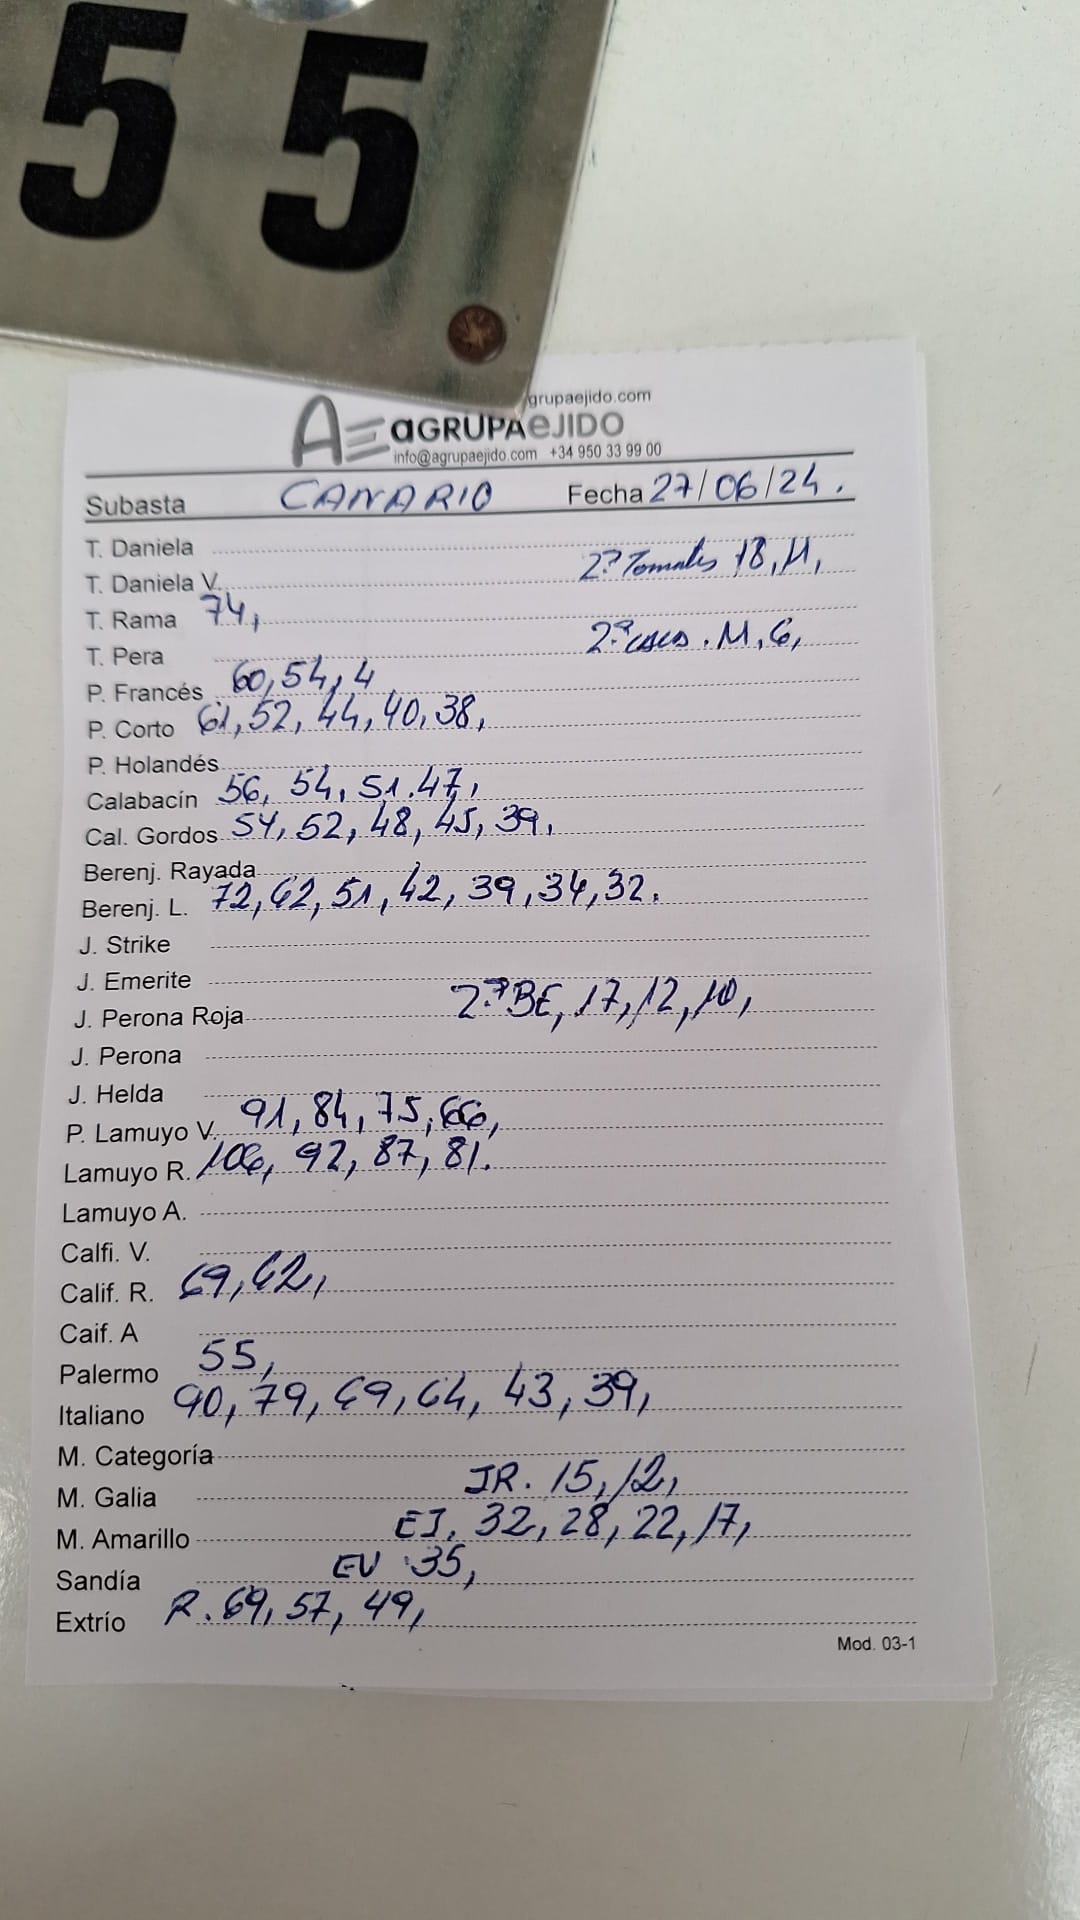 55
grupaejido.com
AE aGRUPAeJIDO
info@agrupaejido.com +34 950 33 99 00
Subasta CANARIO Fecha 27/06/24.
T. Daniela
T. Daniela V. 2ª Tomates 18, 11,
T. Rama 74,
T. Pera 2ª 11, 6,
P. Francés 60, 54, 4
P. Corto 61, 52, 44, 40, 38,
P. Holandés
Calabacín 56, 54, 51. 47,
Cal. Gordos 54, 52, 48, 45, 39,
Berenj. Rayada
Berenj. L. 72, 62, 51, 42, 39, 34, 32.
J. Strike
J. Emerite
J. Perona Roja 2ª BE, 17, 12, 10,
J. Perona
J. Helda
P. Lamuyo V. 91, 84, 75, 66,
Lamuyo R. 106, 92, 87, 81.
Lamuyo A.
Calfi. V.
Calif. R. 69, 62,
Caif. A
Palermo 55,
Italiano 90, 79, 69, 64, 43, 39,
M. Categoría
M. Galia JR. 15, 12,
M. Amarillo EJ. 32, 28, 22, 17,
Sandía EV 35,
Extrío R. 69, 57, 49,
Mod. 03-1